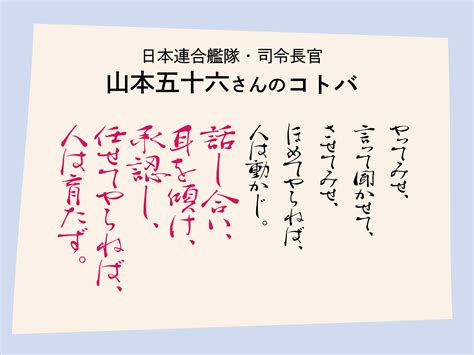 日本連合艦隊・司令長官
山本五十六さんのコトバ
やってみせ、
言って聞かせて、
させてみせ、
ほめてやらねば、
人は動かじ。
話し合い、
耳を傾け、
承認し、
任せてやらねば、
人は育たず。